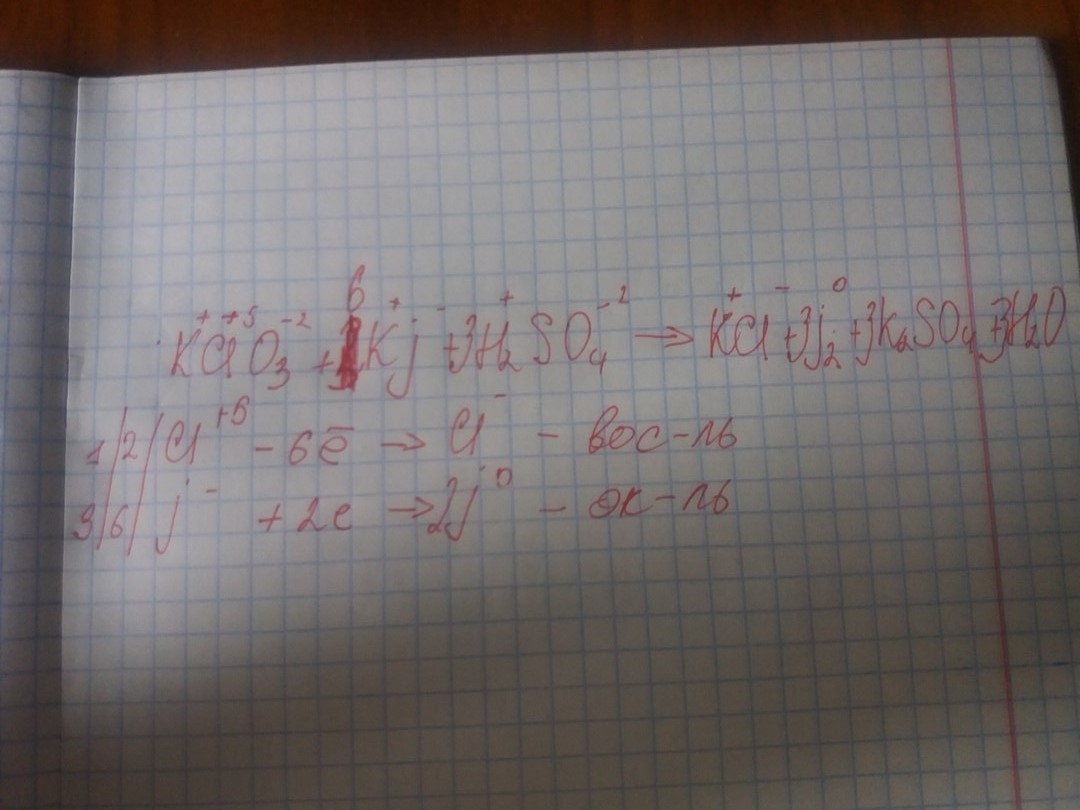 6
K⁺Cl⁺⁵O₃⁻² + K⁺j⁻ + 3H₂⁺SO₄⁻² → K⁺Cl⁻ + 3j₂⁰ + 3K₂SO₄ + 3H₂O
1/2/ Cl⁺⁵ - 6ē → Cl⁻ - вос-ль
3/6/ j⁻ + 2e → 2j⁰ - ок-ль